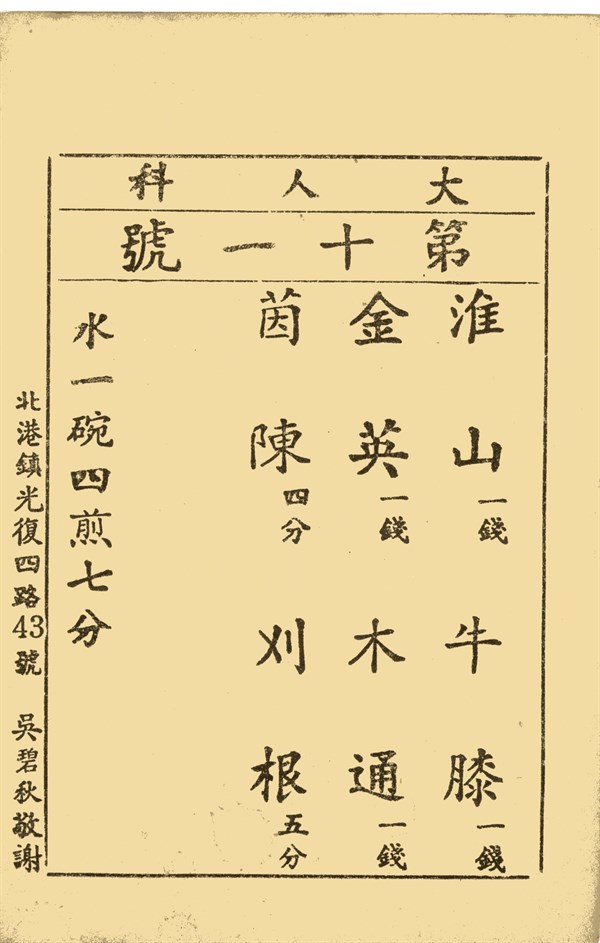 大人科
第十一號
淮山一錢 牛膝一錢
金英一錢 木通一錢
茵陳四分 刈根五分
水一碗四煎七分
北港鎮光復四路43號 吳碧秋敬謝